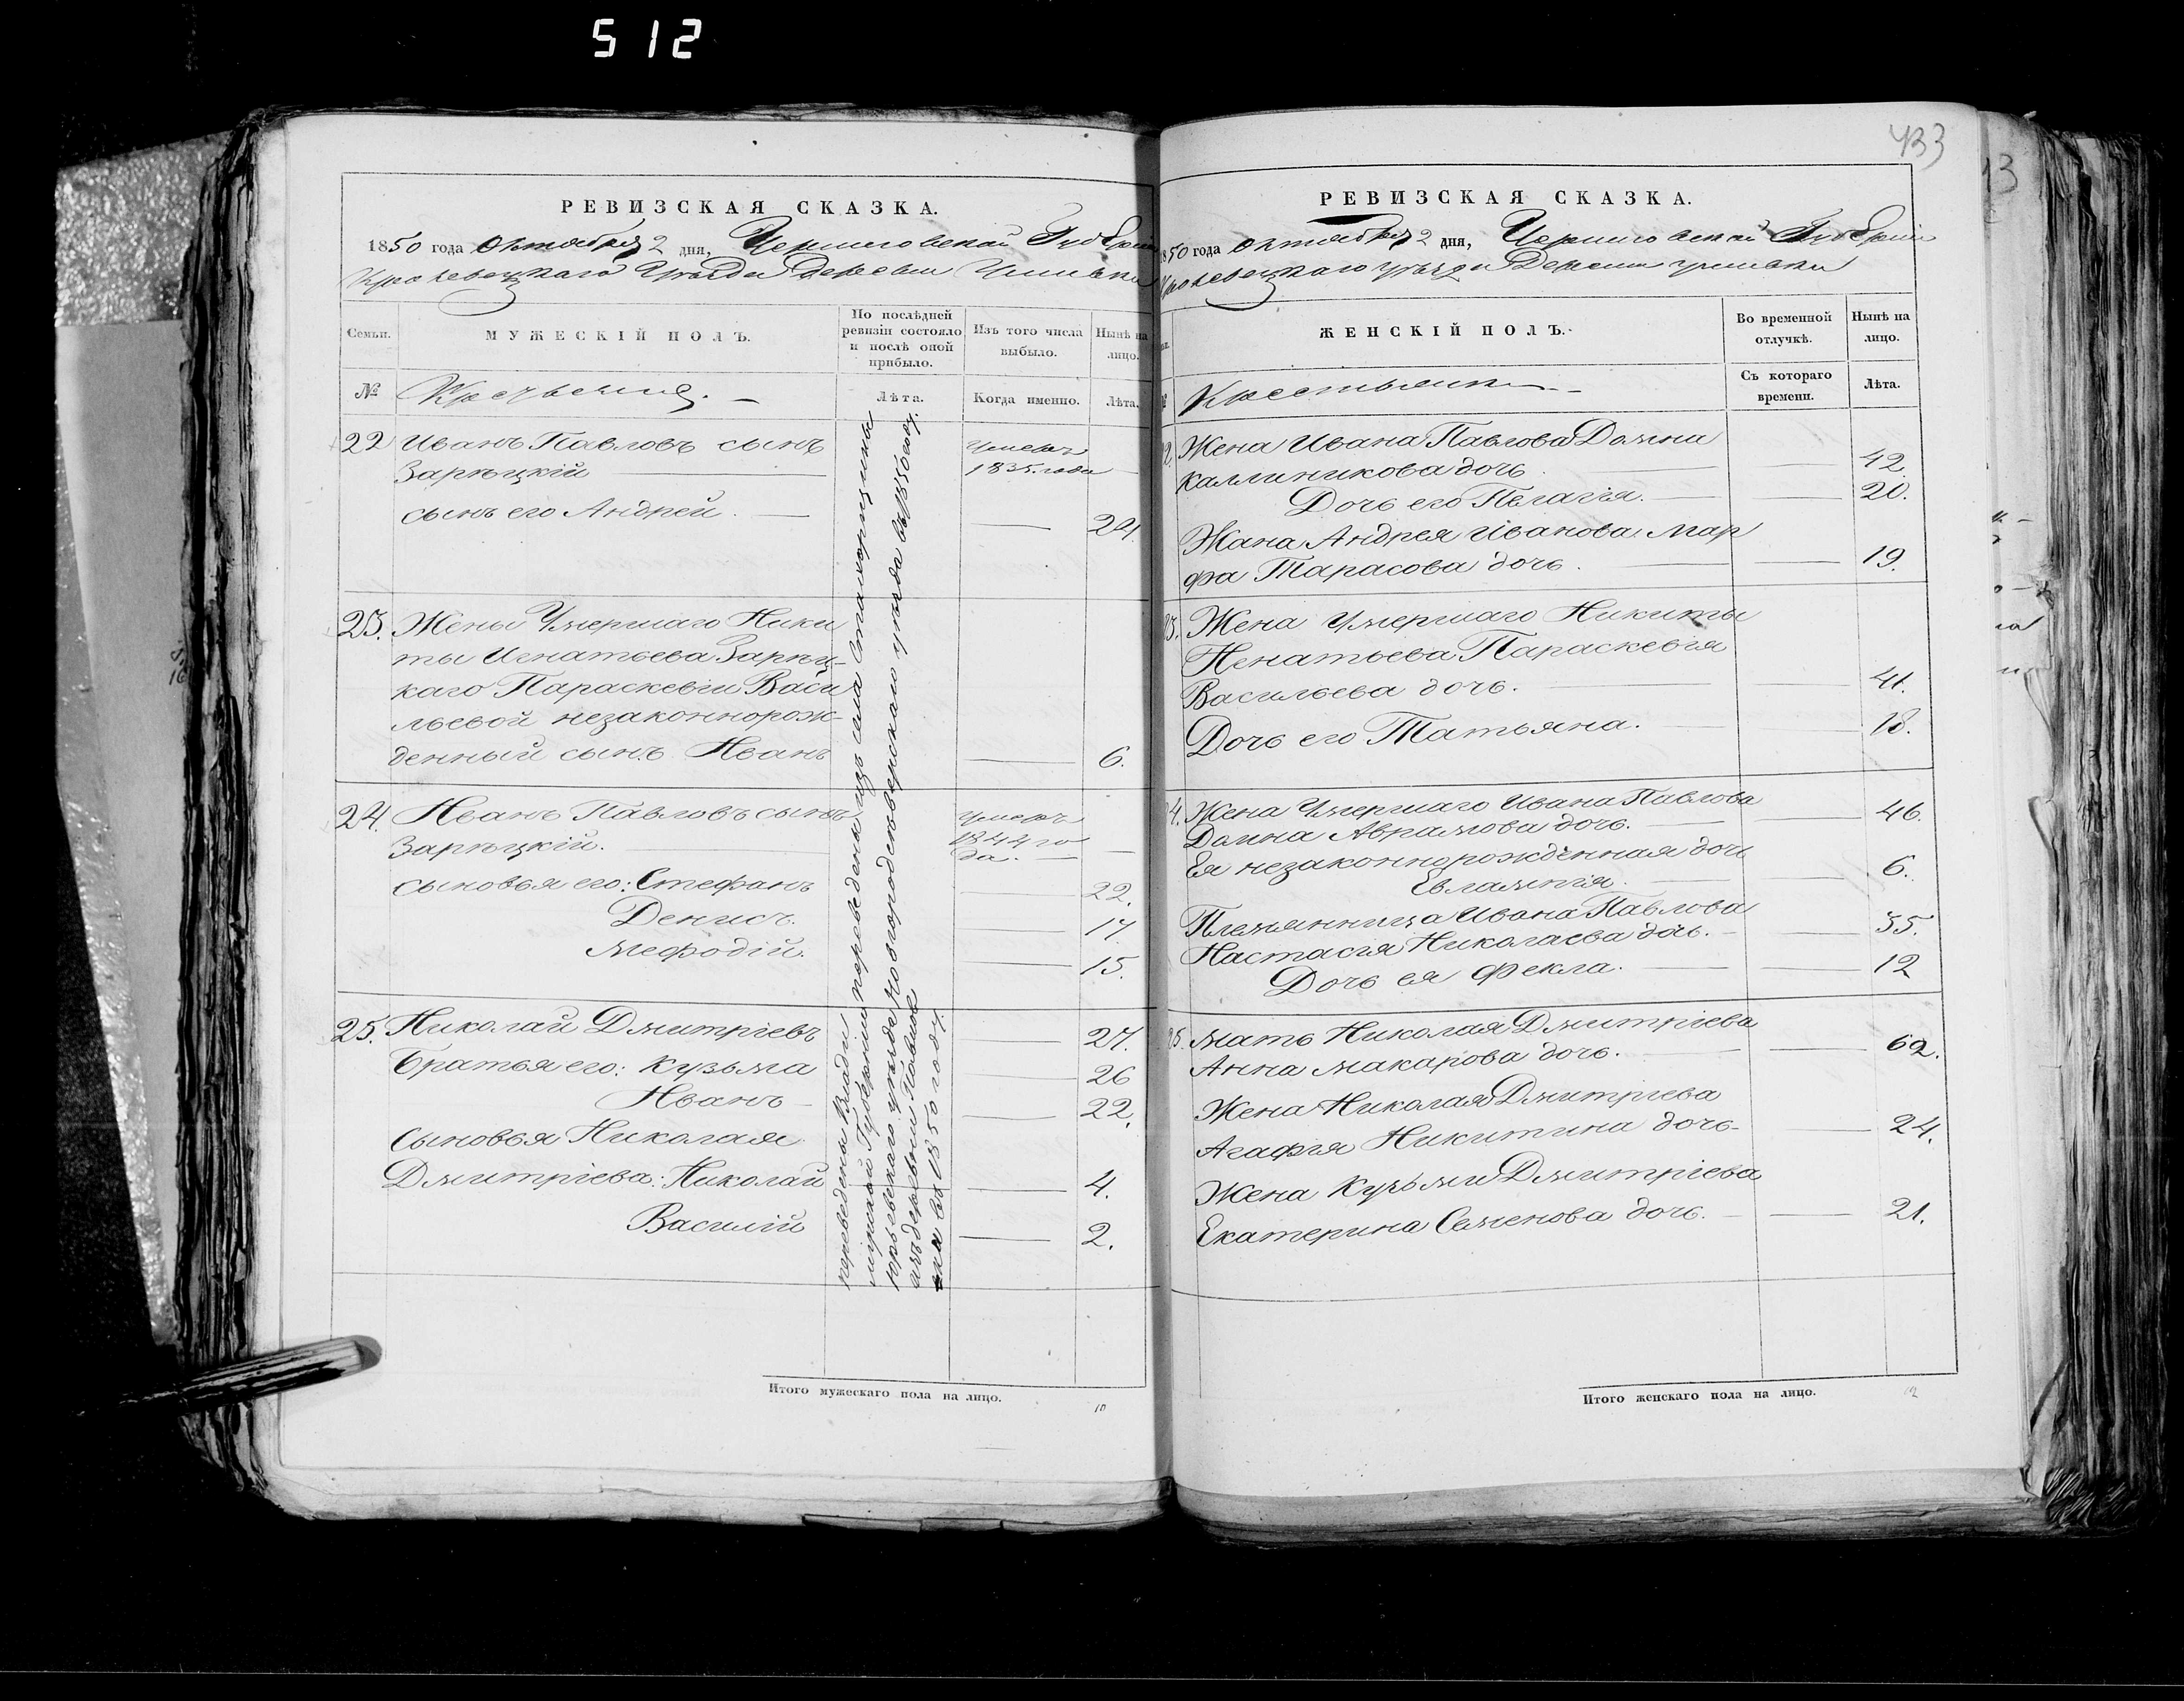 512
РЕВИЗСКАЯ СКАЗКА.
1850 года Октября 2 дня, Черниговской Губерніи
Кролевецкаго Уѣзда Деревни
Семьи.
МУЖЕСКІЙ ПОЛЪ.
По послѣдней ревизіи состояло и послѣ оной прибыло.
Изъ того числа выбыло.
Нынѣ на лицо.
№
Крестьяне.
Лѣта.
Когда именно.
Лѣта.
22 Иванъ Павловъ сынъ
Зарѣцкій
Умеръ
1835 года
сынъ его Андрей. 24.
23. Жены Умершаго Ники
ты Игнатьева Зарѣц-
каго Параскевіи Васи
льевой незаконнорож-
денный сынъ Иванъ 6.
24. Иванъ Павловъ сынъ
Зарѣцкій.
Умеръ
1844 го
да.
сыновья его: Стефанъ 22.
Денисъ. 17
Мефодій. 15.
переведены изъ села
Новгородсѣверскаго уѣзда въ 1850 году.
25. Николай Дмитріевъ 27.
Братья его: Кузьма 26
Иванъ 22.
Сыновья Николая
Дмитріева: Николай 4.
Василій 2.
переведены Влади
мірской Губерніи
Юрьевскаго уѣзда
изъ деревни
въ 1850 году.
Итого мужескаго пола на лицо.
10
433
РЕВИЗСКАЯ СКАЗКА.
1850 года Октября 2 дня, Черниговской Губерніи
Кролевецкаго уѣзда Деревни
ЖЕНСКІЙ ПОЛЪ.
Во временной отлучкѣ.
Нынѣ на лицо.
Крестьянки
Съ котораго времени.
Лѣта.
22. Жена Ивана Павлова Домна
Каллиникова дочь. 42.
Дочь его Пелагія. 20.
Жена Андрея Иванова Мар
фа Тарасова дочь. 19.
23. Жена Умершаго Никиты
Игнатьева Параскевія
Васильева дочь. 41.
Дочь его Татьяна. 18.
24. Жена Умершаго Ивана Павлова
Домна Аврамова дочь. 46.
Ея незаконнорожденная дочь
Евлампія. 6.
Племянница Ивана Павлова
Настасія Николаева дочь. 35.
Дочь ея Фекла. 12
25. Мать Николая Дмитріева
Анна Макарова дочь. 62.
Жена Николая Дмитріева
Агафія Никитина дочь 24.
Жена Кузьмы Дмитріева
Екатерина Семенова дочь. 21.
Итого женскаго пола на лицо.